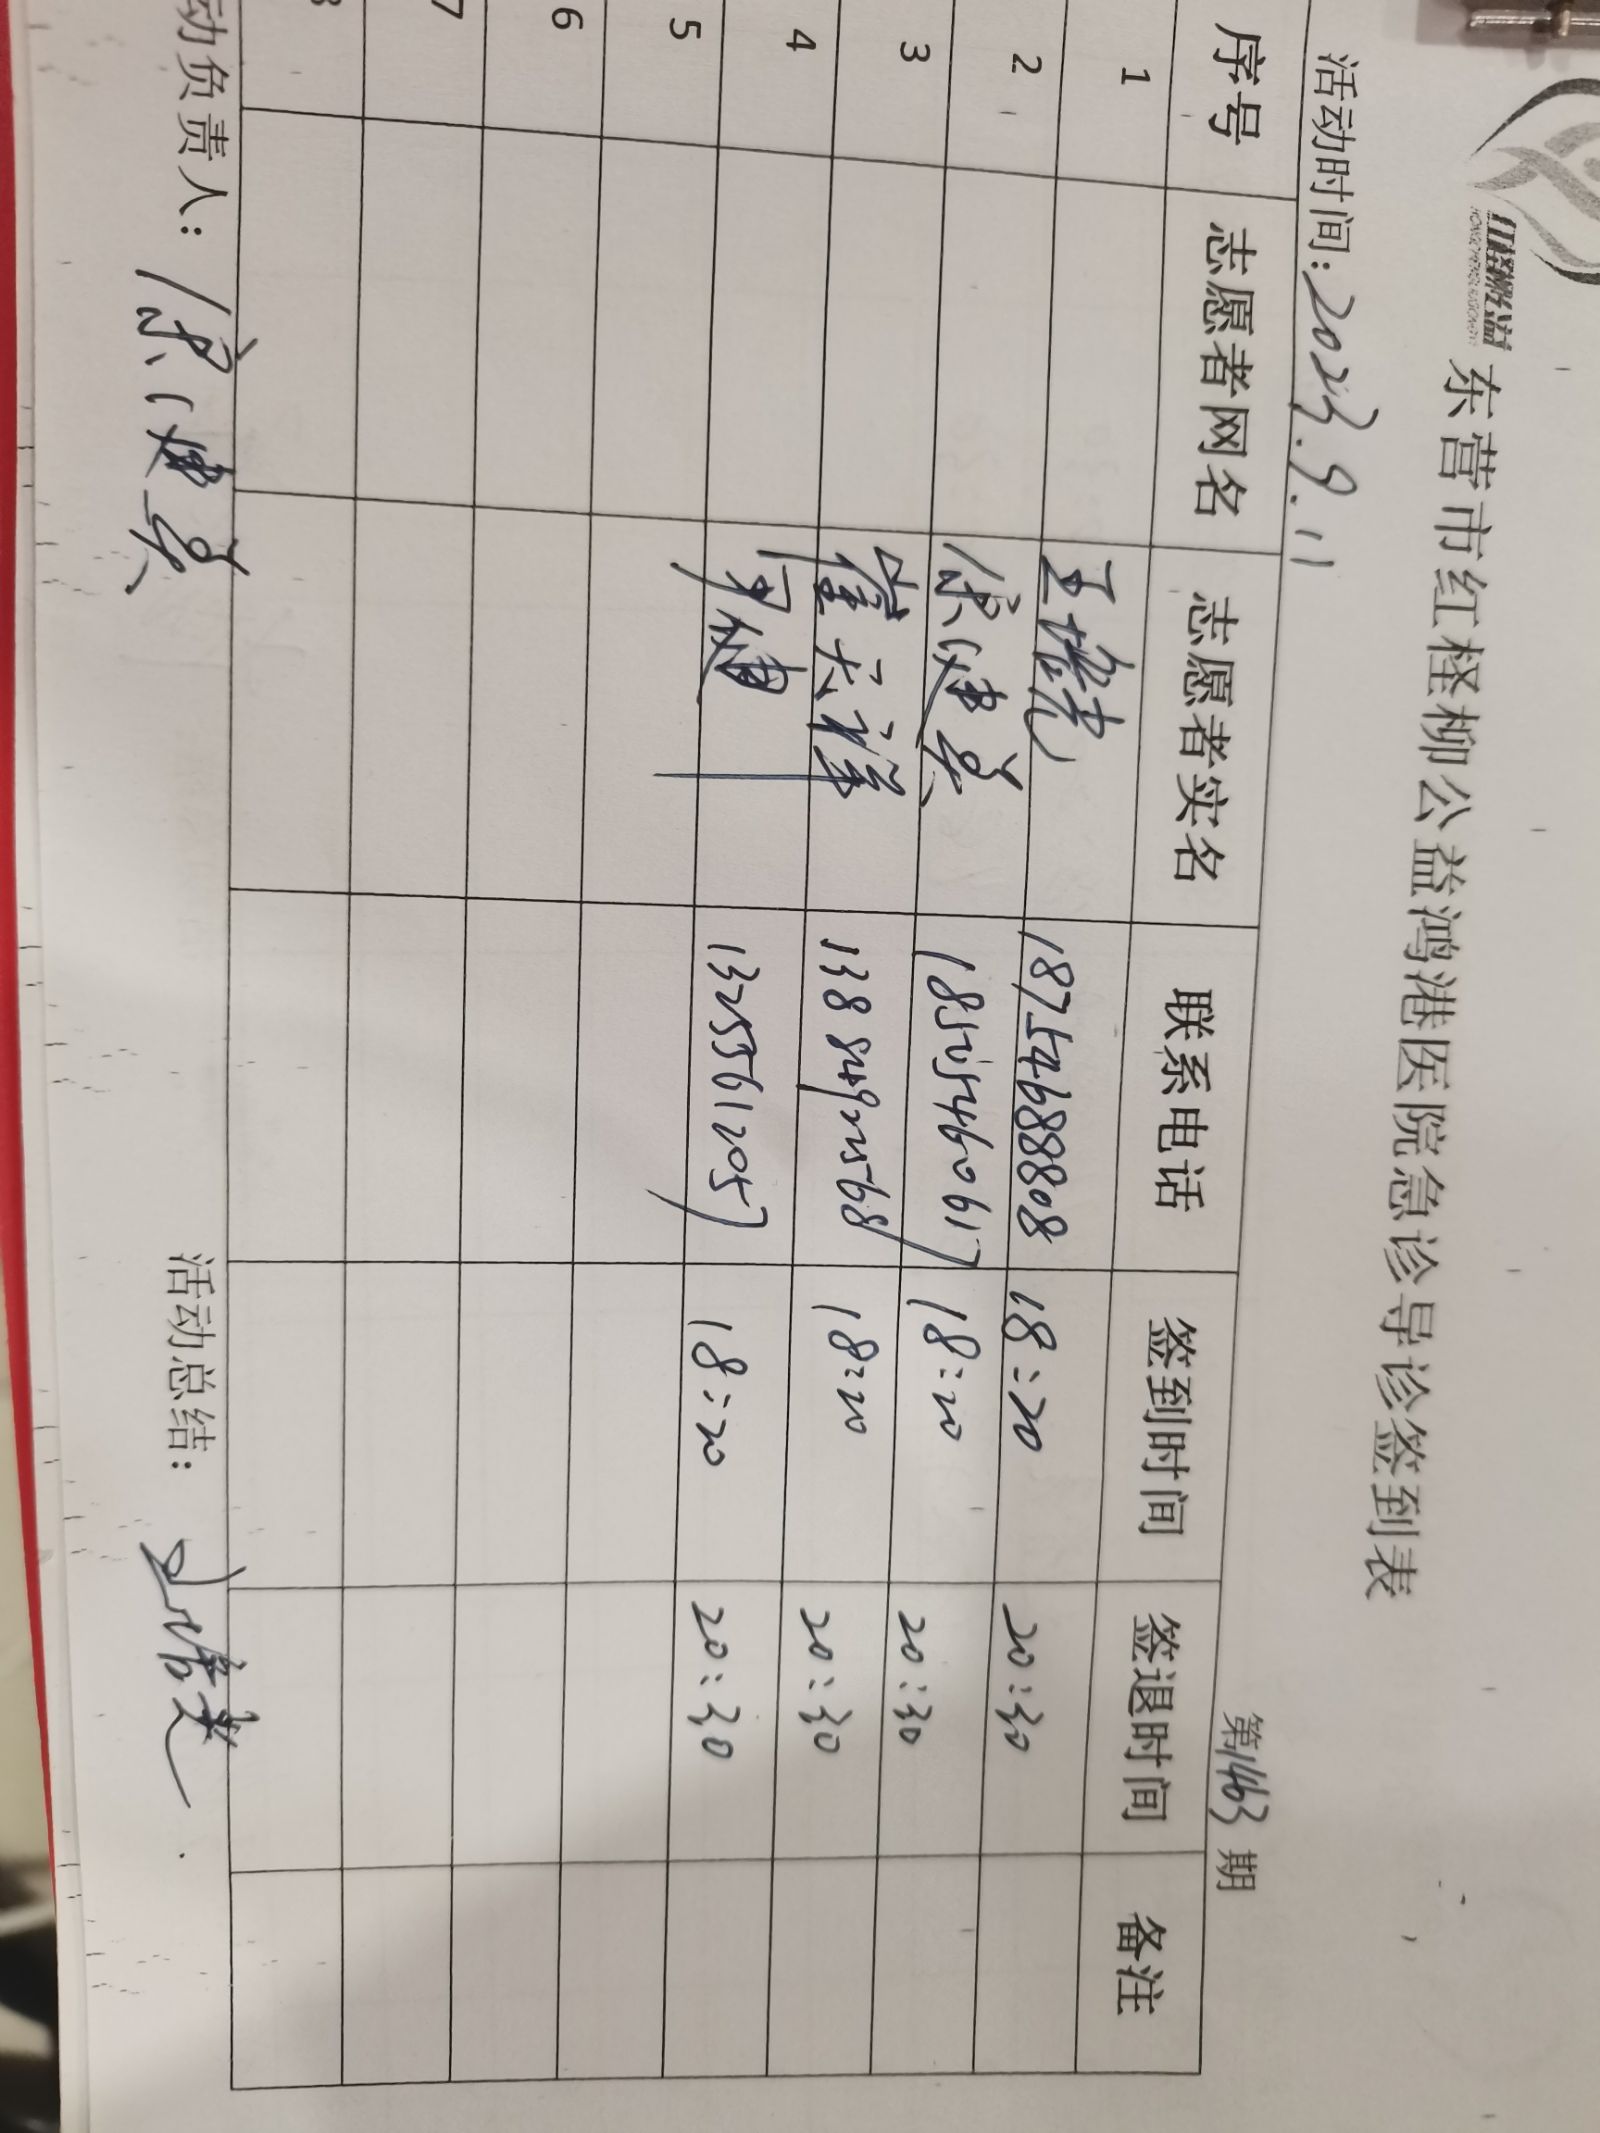 红柽柳公益
东营市红柽柳公益鸿港医院急诊导诊签到表
活动时间:2023.9.11 第1463期
序号 志愿者网名 志愿者实名 联系电话 签到时间 签退时间 备注
1 18754688808 18:20 20:30
2 18:20 20:30
3 崔云祥 18:20 20:30
4 13255612057 18:20 20:30
5
6
7
8
动负责人:
活动总结: